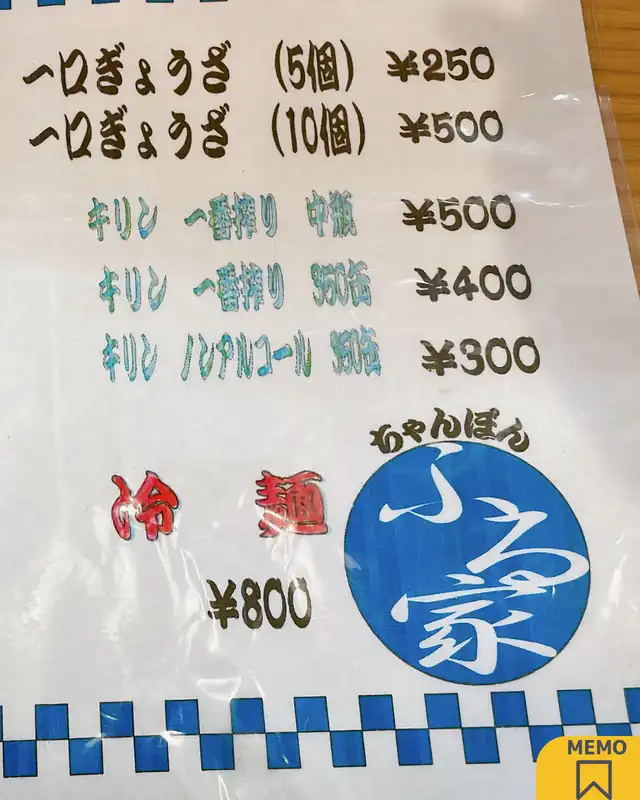 一口ぎょうざ (5個) ¥250
一口ぎょうざ (10個) ¥500
キリン 一番搾り 中瓶 ¥500
キリン 一番搾り 350缶 ¥400
キリン ノンアルコール 350缶 ¥300
冷麺
¥800
ちゃんぽん
ふる家
MEMO